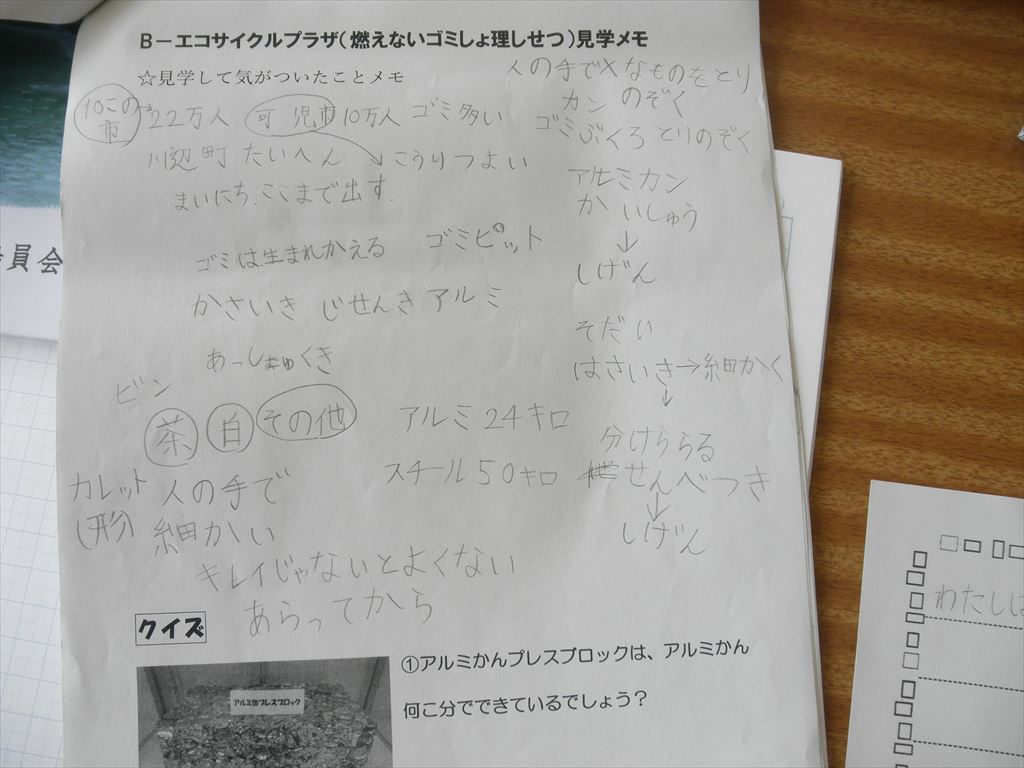 B－エコサイクルプラザ（燃えないゴミしょ理しせつ）見学メモ
☆見学して気がついたことメモ
10この市 22万人 可児市10万人 ゴミ多い
川辺町 たいへん こうりつよい
まいにち、ここまで出す.
ゴミは生まれかえる ゴミピット
かさいき じせんき アルミ
あっしゅくき
ビン
茶 白 その他
アルミ 24キロ
スチール 50キロ
カレット 人の手で
(形) 細かい
キレイじゃないとよくない
あらってから
人の手で×なものをとり
のぞく
カン
ゴミぶくろ とりのぞく
アルミカン
かいしゅう
↓
しげん
そだい
はさいき→細かく
↓
分けららる
せんべつき
↓
しげん
クイズ
アルミ缶プレスブロック
①アルミかんプレスブロックは、アルミかん
何こ分でできているでしょう？
員会
わたしは